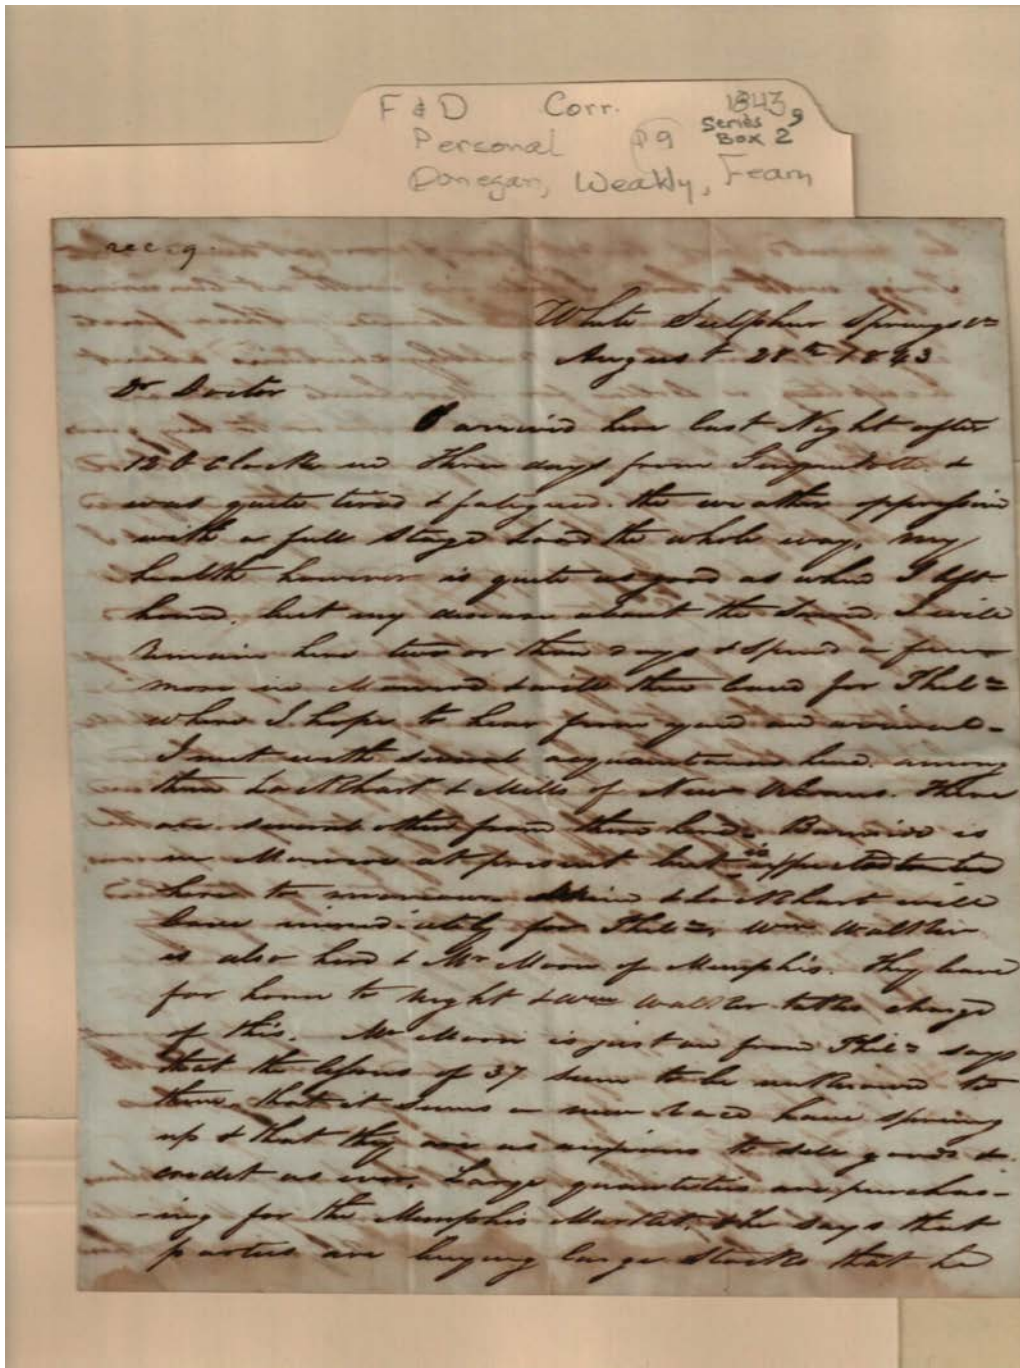 F & D Corr. 1843
Personal P9 Series 9
Box 2
Donegan, Weakly, Fearn
rec. 9.
White Sulphur Springs Va
August 28th 1843
Dr Doctor
I arrived here last Night after
12 O Clock in Three days from &
was quite tired & fatigued. the weather oppressive
with a full Stage load the whole way, my
health however is quite as good as when I left
home. but my disease about the Same. I will
Remain here two or three days & Spend a few
more in Monroe & will then leave for Phila
where I hope to hear from you on arrival -
I met with several acquaintances here. among
them Lockhart & Mills of New Orleans. There
are several others from there here. is
in Monroe at present but is expected to be
here to morrow & Lockhart will
leave immediately for Phila, Wm Walker
is also here & Mr Moon of Memphis. They leave
for home to Night & Wm Walker takes charge
of this. Mr Moon is just in from Phila says
that the lessons of 37 seem to be to
them. that it seems a new race have sprung
up & that they are as anxious to sell goods on
credit as ever. Large quantities are purchas-
-ing for the Memphis Market, & he says that
parties are buying large Stocks that he